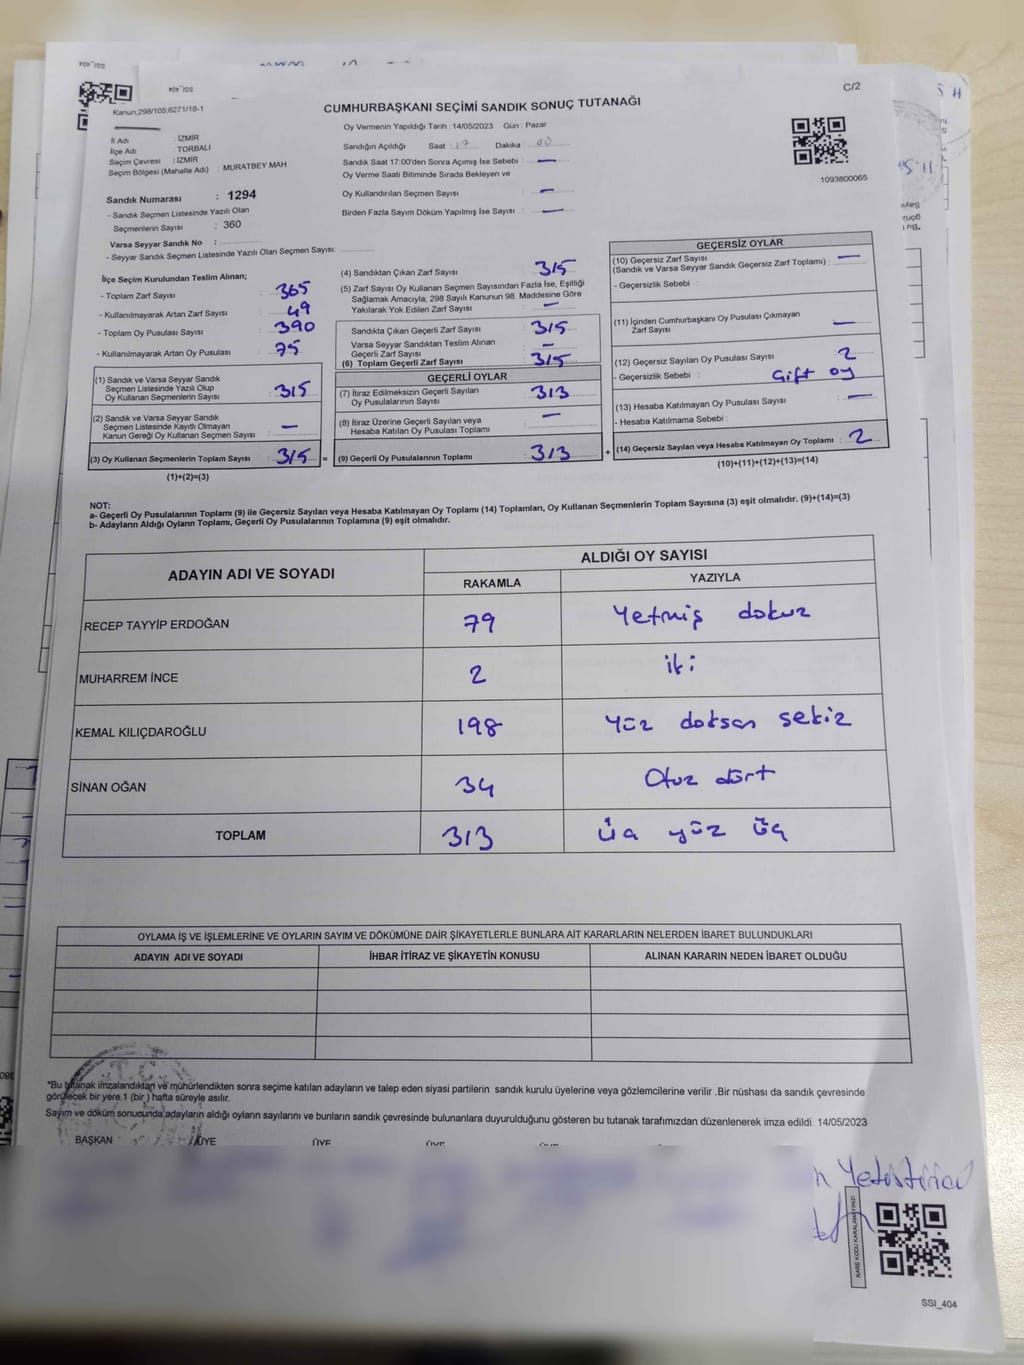 C/2
Kanun:298/105;6271/18-1
CUMHURBAŞKANI SEÇİMİ SANDIK SONUÇ TUTANAĞI
İl Adı : İZMİR
İlçe Adı : TORBALI
Seçim Çevresi : İZMİR
Seçim Bölgesi (Mahalle Adı) : MURATBEY MAH
Sandık Numarası : 1294
- Sandık Seçmen Listesinde Yazılı Olan
Seçmenlerin Sayısı : 360
Varsa Seyyar Sandık No :
- Seyyar Sandık Seçmen Listesinde Yazılı Olan Seçmen Sayısı:
Oy Vermenin Yapıldığı Tarih : 14/05/2023 Gün : Pazar
Sandığın Açıldığı Saat : 17 Dakika : 00
Sandık Saat 17:00'den Sonra Açımış İse Sebebi : —
Oy Verme Saati Bitiminde Sırada Bekleyen ve
Oy Kullandırılan Seçmen Sayısı : —
Birden Fazla Sayım Döküm Yapılmış İse Sayısı : —
1093800065
İlçe Seçim Kurulundan Teslim Alınan;
- Toplam Zarf Sayısı : 365
- Kullanılmayarak Artan Zarf Sayısı : 49
- Toplam Oy Pusulası Sayısı : 390
- Kullanılmayarak Artan Oy Pusulası : 75
(1) Sandık ve Varsa Seyyar Sandık
Seçmen Listesinde Yazılı Olup
Oy Kullanan Seçmenlerin Sayısı : 315
(2) Sandık ve Varsa Seyyar Sandık
Seçmen Listesinde Kayıtlı Olmayan
Kanun Gereği Oy Kullanan Seçmen Sayısı : —
(3) Oy Kullanan Seçmenlerin Toplam Sayısı : 315
(1)+(2)=(3)
(4) Sandıktan Çıkan Zarf Sayısı : 315
(5) Zarf Sayısı Oy Kullanan Seçmen Sayısından Fazla İse, Eşitliği
Sağlamak Amacıyla, 298 Sayılı Kanunun 98. Maddesine Göre
Yakılarak Yok Edilen Zarf Sayısı : —
Sandıkta Çıkan Geçerli Zarf Sayısı : 315
Varsa Seyyar Sandıktan Teslim Alınan
Geçerli Zarf Sayısı : —
(6) Toplam Geçerli Zarf Sayısı : 315
GEÇERLİ OYLAR
(7) İtiraz Edilmeksizin Geçerli Sayılan
Oy Pusulalarının Sayısı : 313
(8) İtiraz Üzerine Geçerli Sayılan veya
Hesaba Katılan Oy Pusulası Toplamı : —
= (9) Geçerli Oy Pusulalarının Toplamı : 313 +
GEÇERSİZ OYLAR
(10) Geçersiz Zarf Sayısı
(Sandık ve Varsa Seyyar Sandık Geçersiz Zarf Toplamı) : —
- Geçersizlik Sebebi :
(11) İçinden Cumhurbaşkanı Oy Pusulası Çıkmayan
Zarf Sayısı : —
(12) Geçersiz Sayılan Oy Pusulası Sayısı : 2
- Geçersizlik Sebebi : Çift oy
(13) Hesaba Katılmayan Oy Pusulası Sayısı : —
- Hesaba Katılmama Sebebi :
(14) Geçersiz Sayılan veya Hesaba Katılmayan Oy Toplamı : 2
(10)+(11)+(12)+(13)=(14)
NOT:
a- Geçerli Oy Pusulalarının Toplamı (9) ile Geçersiz Sayılan veya Hesaba Katılmayan Oy Toplamı (14) Toplamları, Oy Kullanan Seçmenlerin Toplam Sayısına (3) eşit olmalıdır. (9)+(14)=(3)
b- Adayların Aldığı Oyların Toplamı, Geçerli Oy Pusulalarının Toplamına (9) eşit olmalıdır.
ADAYIN ADI VE SOYADI ALDIĞI OY SAYISI
RAKAMLA YAZIYLA
RECEP TAYYİP ERDOĞAN 79 Yetmiş dokuz
MUHARREM İNCE 2 iki
KEMAL KILIÇDAROĞLU 198 Yüz doksan sekiz
SİNAN OĞAN 34 Otuz dört
TOPLAM 313 üç yüz üç
OYLAMA İŞ VE İŞLEMLERİNE VE OYLARIN SAYIM VE DÖKÜMÜNE DAİR ŞİKAYETLERLE BUNLARA AİT KARARLARIN NELERDEN İBARET BULUNDUKLARI
ADAYIN ADI VE SOYADI İHBAR İTİRAZ VE ŞİKAYETİN KONUSU ALINAN KARARIN NEDEN İBARET OLDUĞU
*Bu tutanak imzalandıktan ve mühürlendikten sonra seçime katılan adayların ve talep eden siyasi partilerin sandık kurulu üyelerine veya gözlemcilerine verilir .Bir nüshası da sandık çevresinde
görülecek bir yere 1 (bir ) hafta süreyle asılır.
Sayım ve döküm sonucunda adayların aldığı oyların sayılarını ve bunların sandık çevresinde bulunanlara duyurulduğunu gösteren bu tutanak tarafımızdan düzenlenerek imza edildi. 14/05/2023
BAŞKAN ÜYE ÜYE ÜYE
KARE KODU KARALAMAYINIZ!
SSI_404